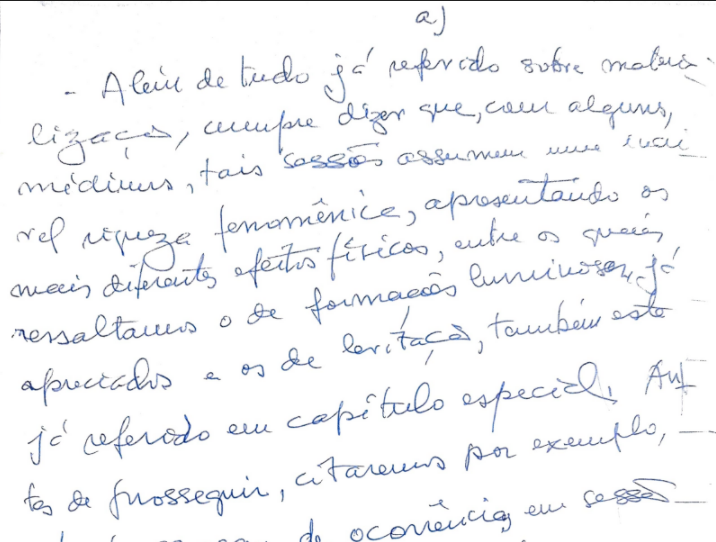 a)
- Além de tudo já referido sobre materia-
lização, cumpre dizer que, com alguns,
médiuns, tais sessões assumem uma
riqueza fenomênica, apresentando os
mais diferentes efeitos físicos, entre os quais,
ressaltamos o de formações luminosas, já
apreciados e os de levitação, também este
já referido em capítulo especial. An-
tes de prosseguir, citaremos por exemplo,
de ocorrências em sessões